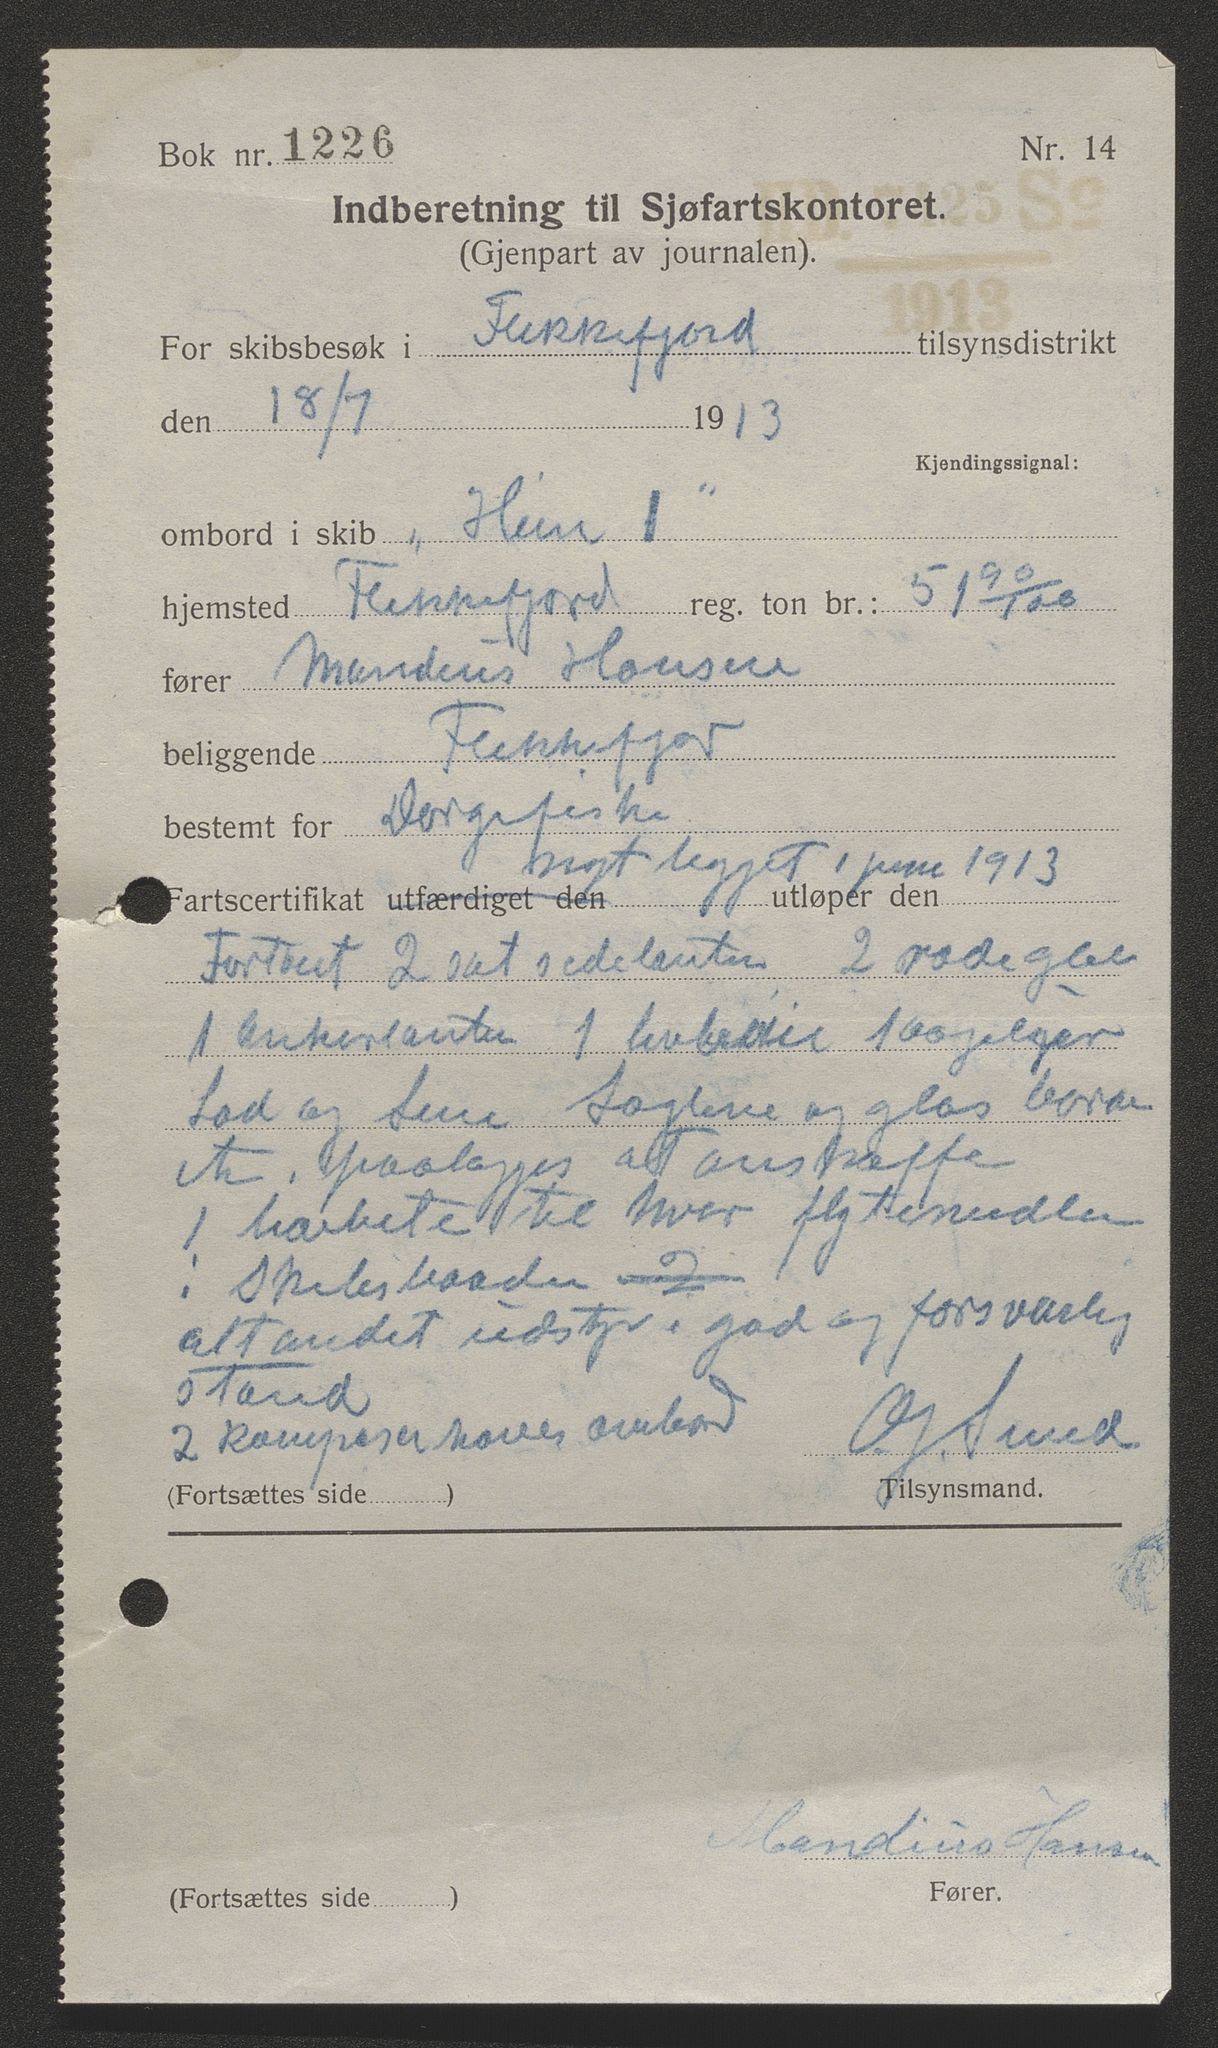 Bok nr. 1226 Nr. 14
HD. 7425 So
Indberetning til Sjøfartskontoret.
1913
(Gjenpart av journalen).
For skibsbesøk i Flekkefjord tilsynsdistrikt
den 18/7 1913
Kjendingssignal:
ombord i skib "Hein 1"
hjemsted Flekkefjord reg. ton br.: 51 90/100
fører Mandius Hansen
beliggende Flekkefjor
bestemt for Dorgefiske
nyt bygget 1 june 1913
Fartscertifikat utfærdiget den utløper den
Fortent 2 sat sidelanter 2 rode glas
1 Ankerlanter 1
Lod og Line Logline og glas
etc. paalagges at anskaffe
1 til hver flytemidler
i Skibsbaaden 2
alt andet udstyr i god og forsvarlig
stand
2 Kompaser haves ombord O.J. Sund
(Fortsættes side ) Tilsynsmand.
Mandius Hansen
(Fortsættes side ) Fører.